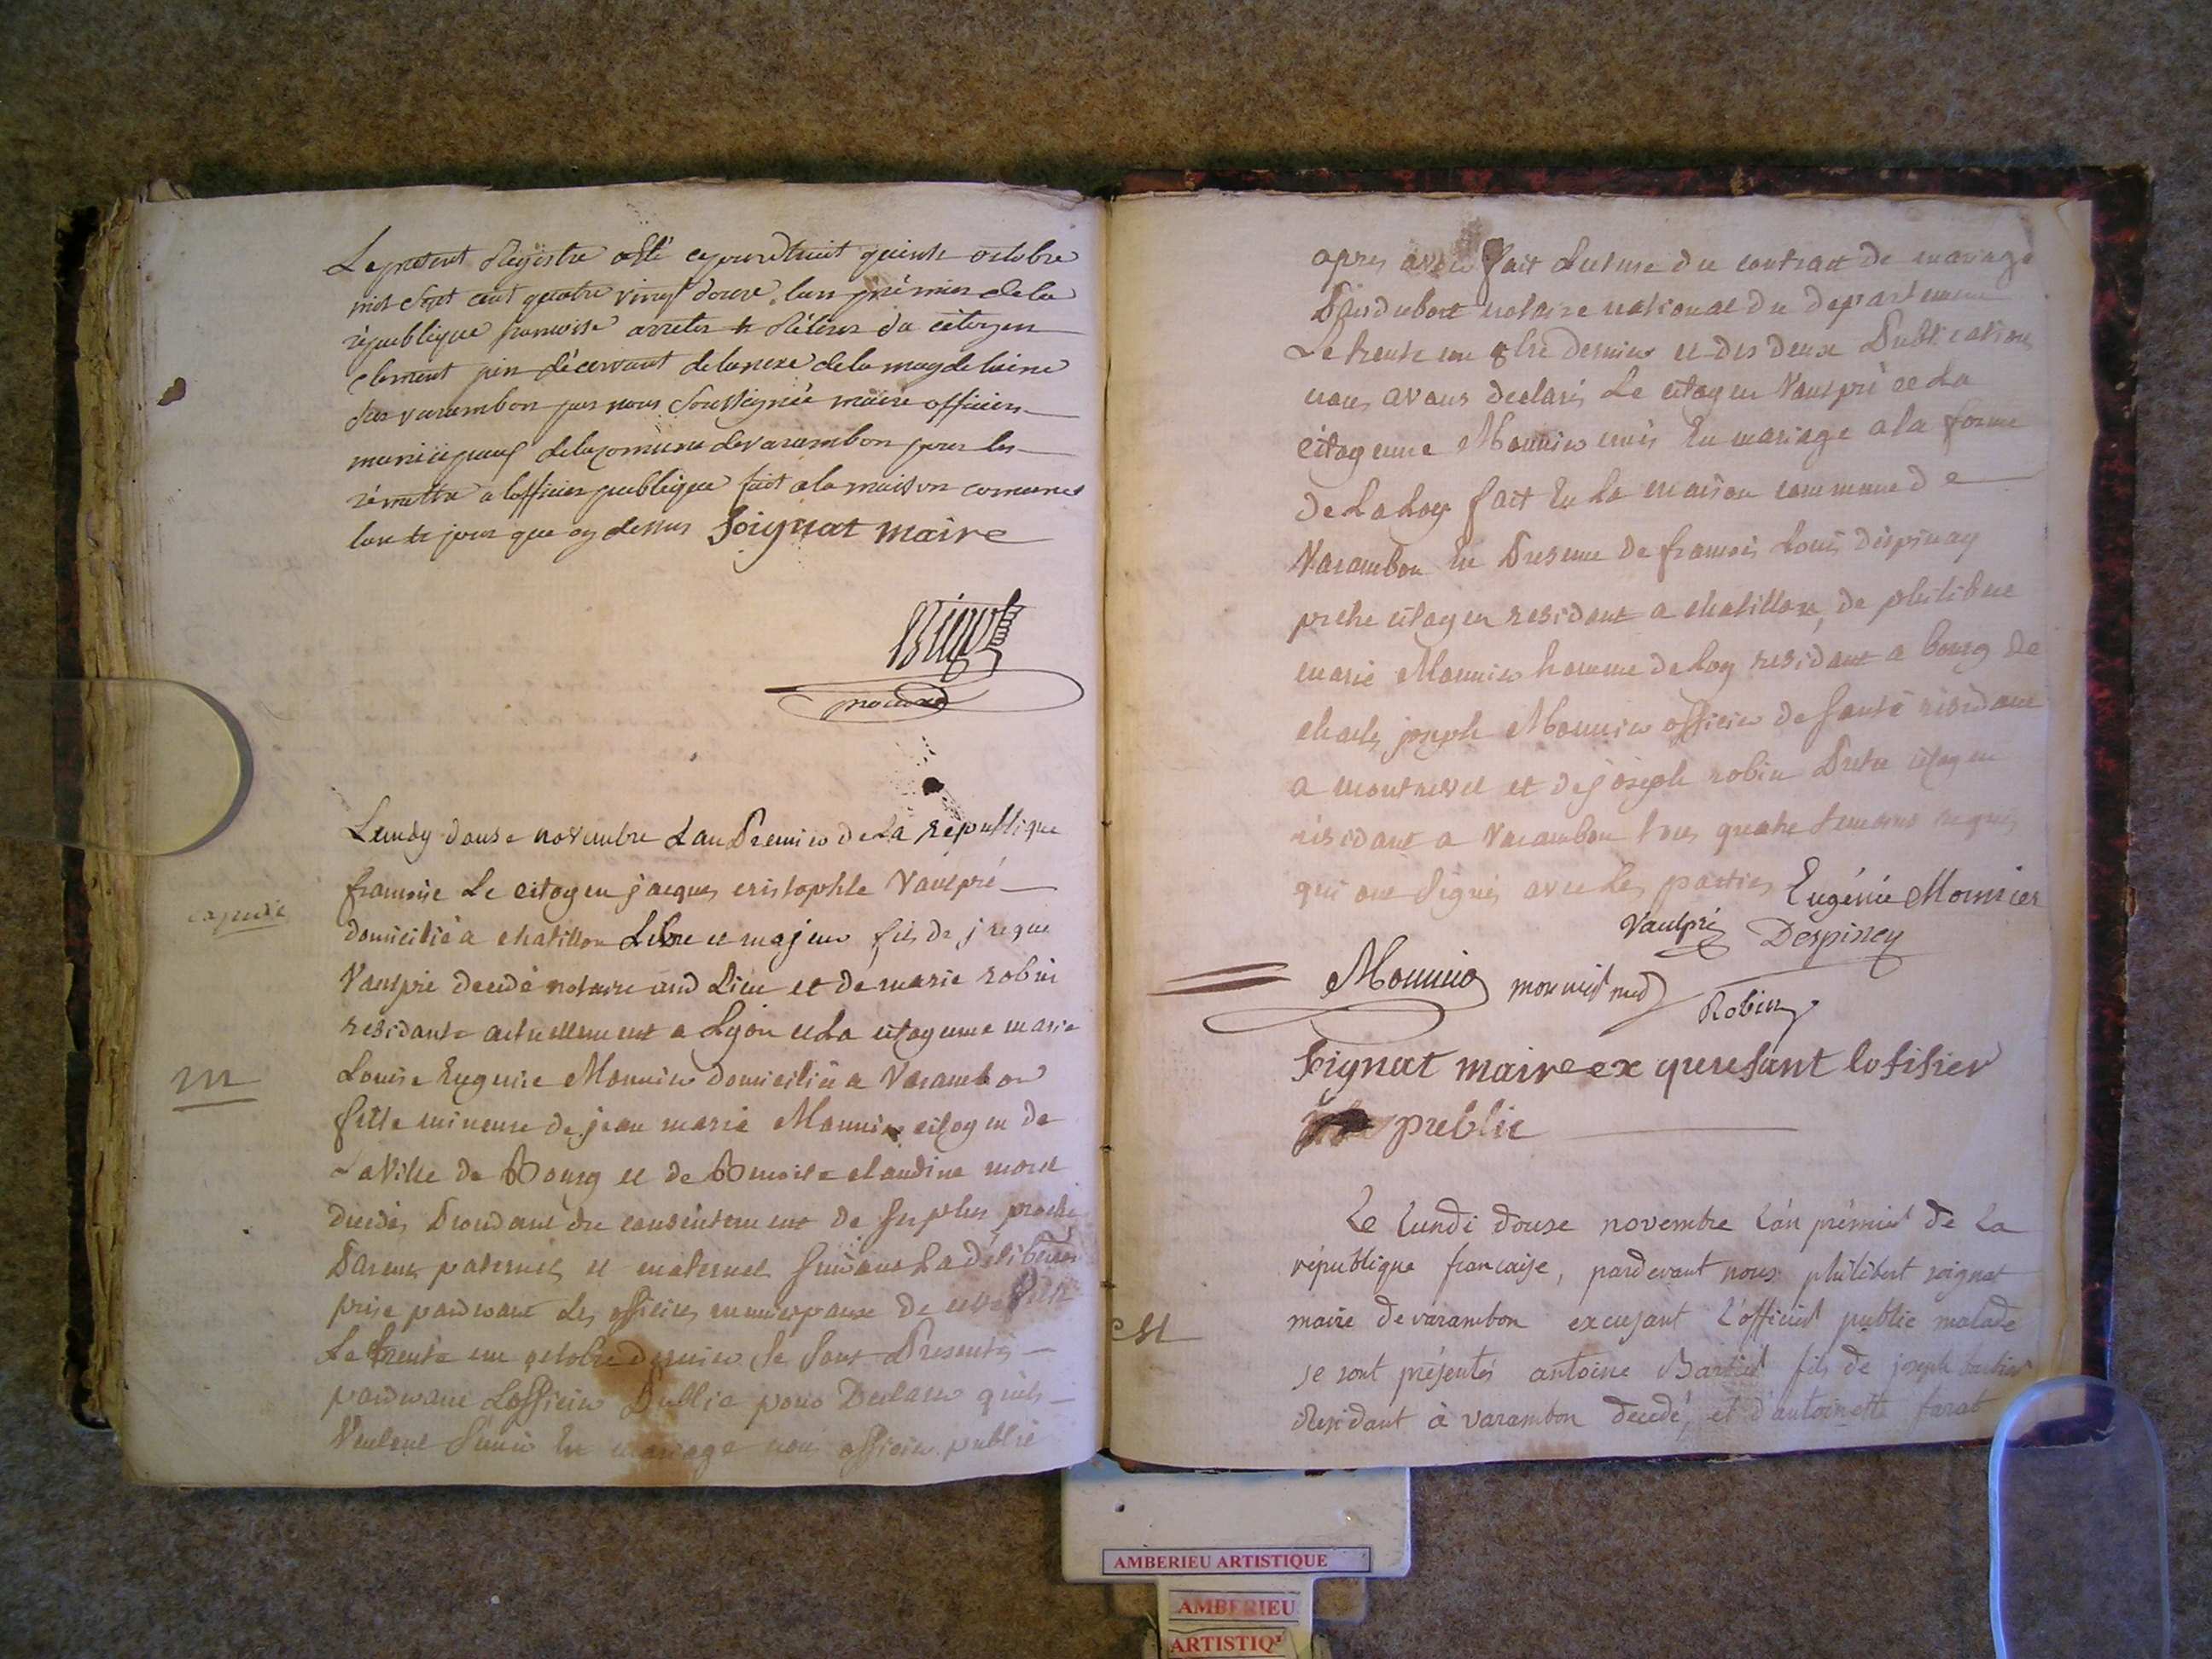 Le present Regïstre a Eté cejourdhuit quinse octobre
mil Sept cent quatre vingt douse lan prémier dela
république francoise arreter & Rétirer du citoyen
clement pin décervant delanexe delamagdelaine
sur varambon par nous Soussignée maire officiers
municipeaux delacomune devarambon pour les
rémettre a lofficier publique fait alamaison comune
lan & jour que cy dessus Soignat maire
Lundy douse novembre Lan Premier deLa republique
francoise Le citoyen jacques cristophle Vaulpré
expedié
domicilié a chatillon Libre et majeur fils de jacque
Vaulpré decedé notaire aud Lieu et de marie robin
residante actuellement a Lyon et La citoyenne marie
m
Louise Eugenie Monnier domiciliée a Varambon
fille mineure de jean marie Monnier citoyen de
La Ville de Bourg et de Benoite claudine morel
decedés Procedant du consentement de ses plus proches
Parens paternels et maternels suivant La déliberation
prise pardevant Les officiers municipaux de
Le trente un octobre dernier se sont Presentés
pardevant Lofficier Public pour Declarer quils
Veulent sunir En mariage nous officier public
apres avoir fait Lecture du contract de mariage
notaire national du departement
Le trente un 8bre dernier et des deux Publications
nous avons declarés Le citoyen Vaulpré et La
citoyenne Monnier unis En mariage a la forme
de La Loy fait En La maison commune de
Varambon En Presence de francois Louis dépinay
pretre citoyen residant a chatillon, de philibert
marie Monnier homme de Loy residant a bourg de
charle joseph Monnier officier de santé residant
a montrevel et de joseph robin Pretre citoyen
résidant a Varambon tous quatre temoins requis
qui ont signés avec Les parties Eugénie Monnier
Vaulpré Despiney
Monnier monnier med Robin
Soignat maire ex quresant lofisier
public
Le Lundi douse novembre L'an prémier de La
république francaise, pardevant nous philibert soignat
maire de varambon excusant L'officier public malade
se sont présentés antoine Barbier fils de joseph barbier
Residant à varambon decedé, et d'antoinette farat
AMBERIEU ARTISTIQUE
AMBERIEU
ARTISTIQ